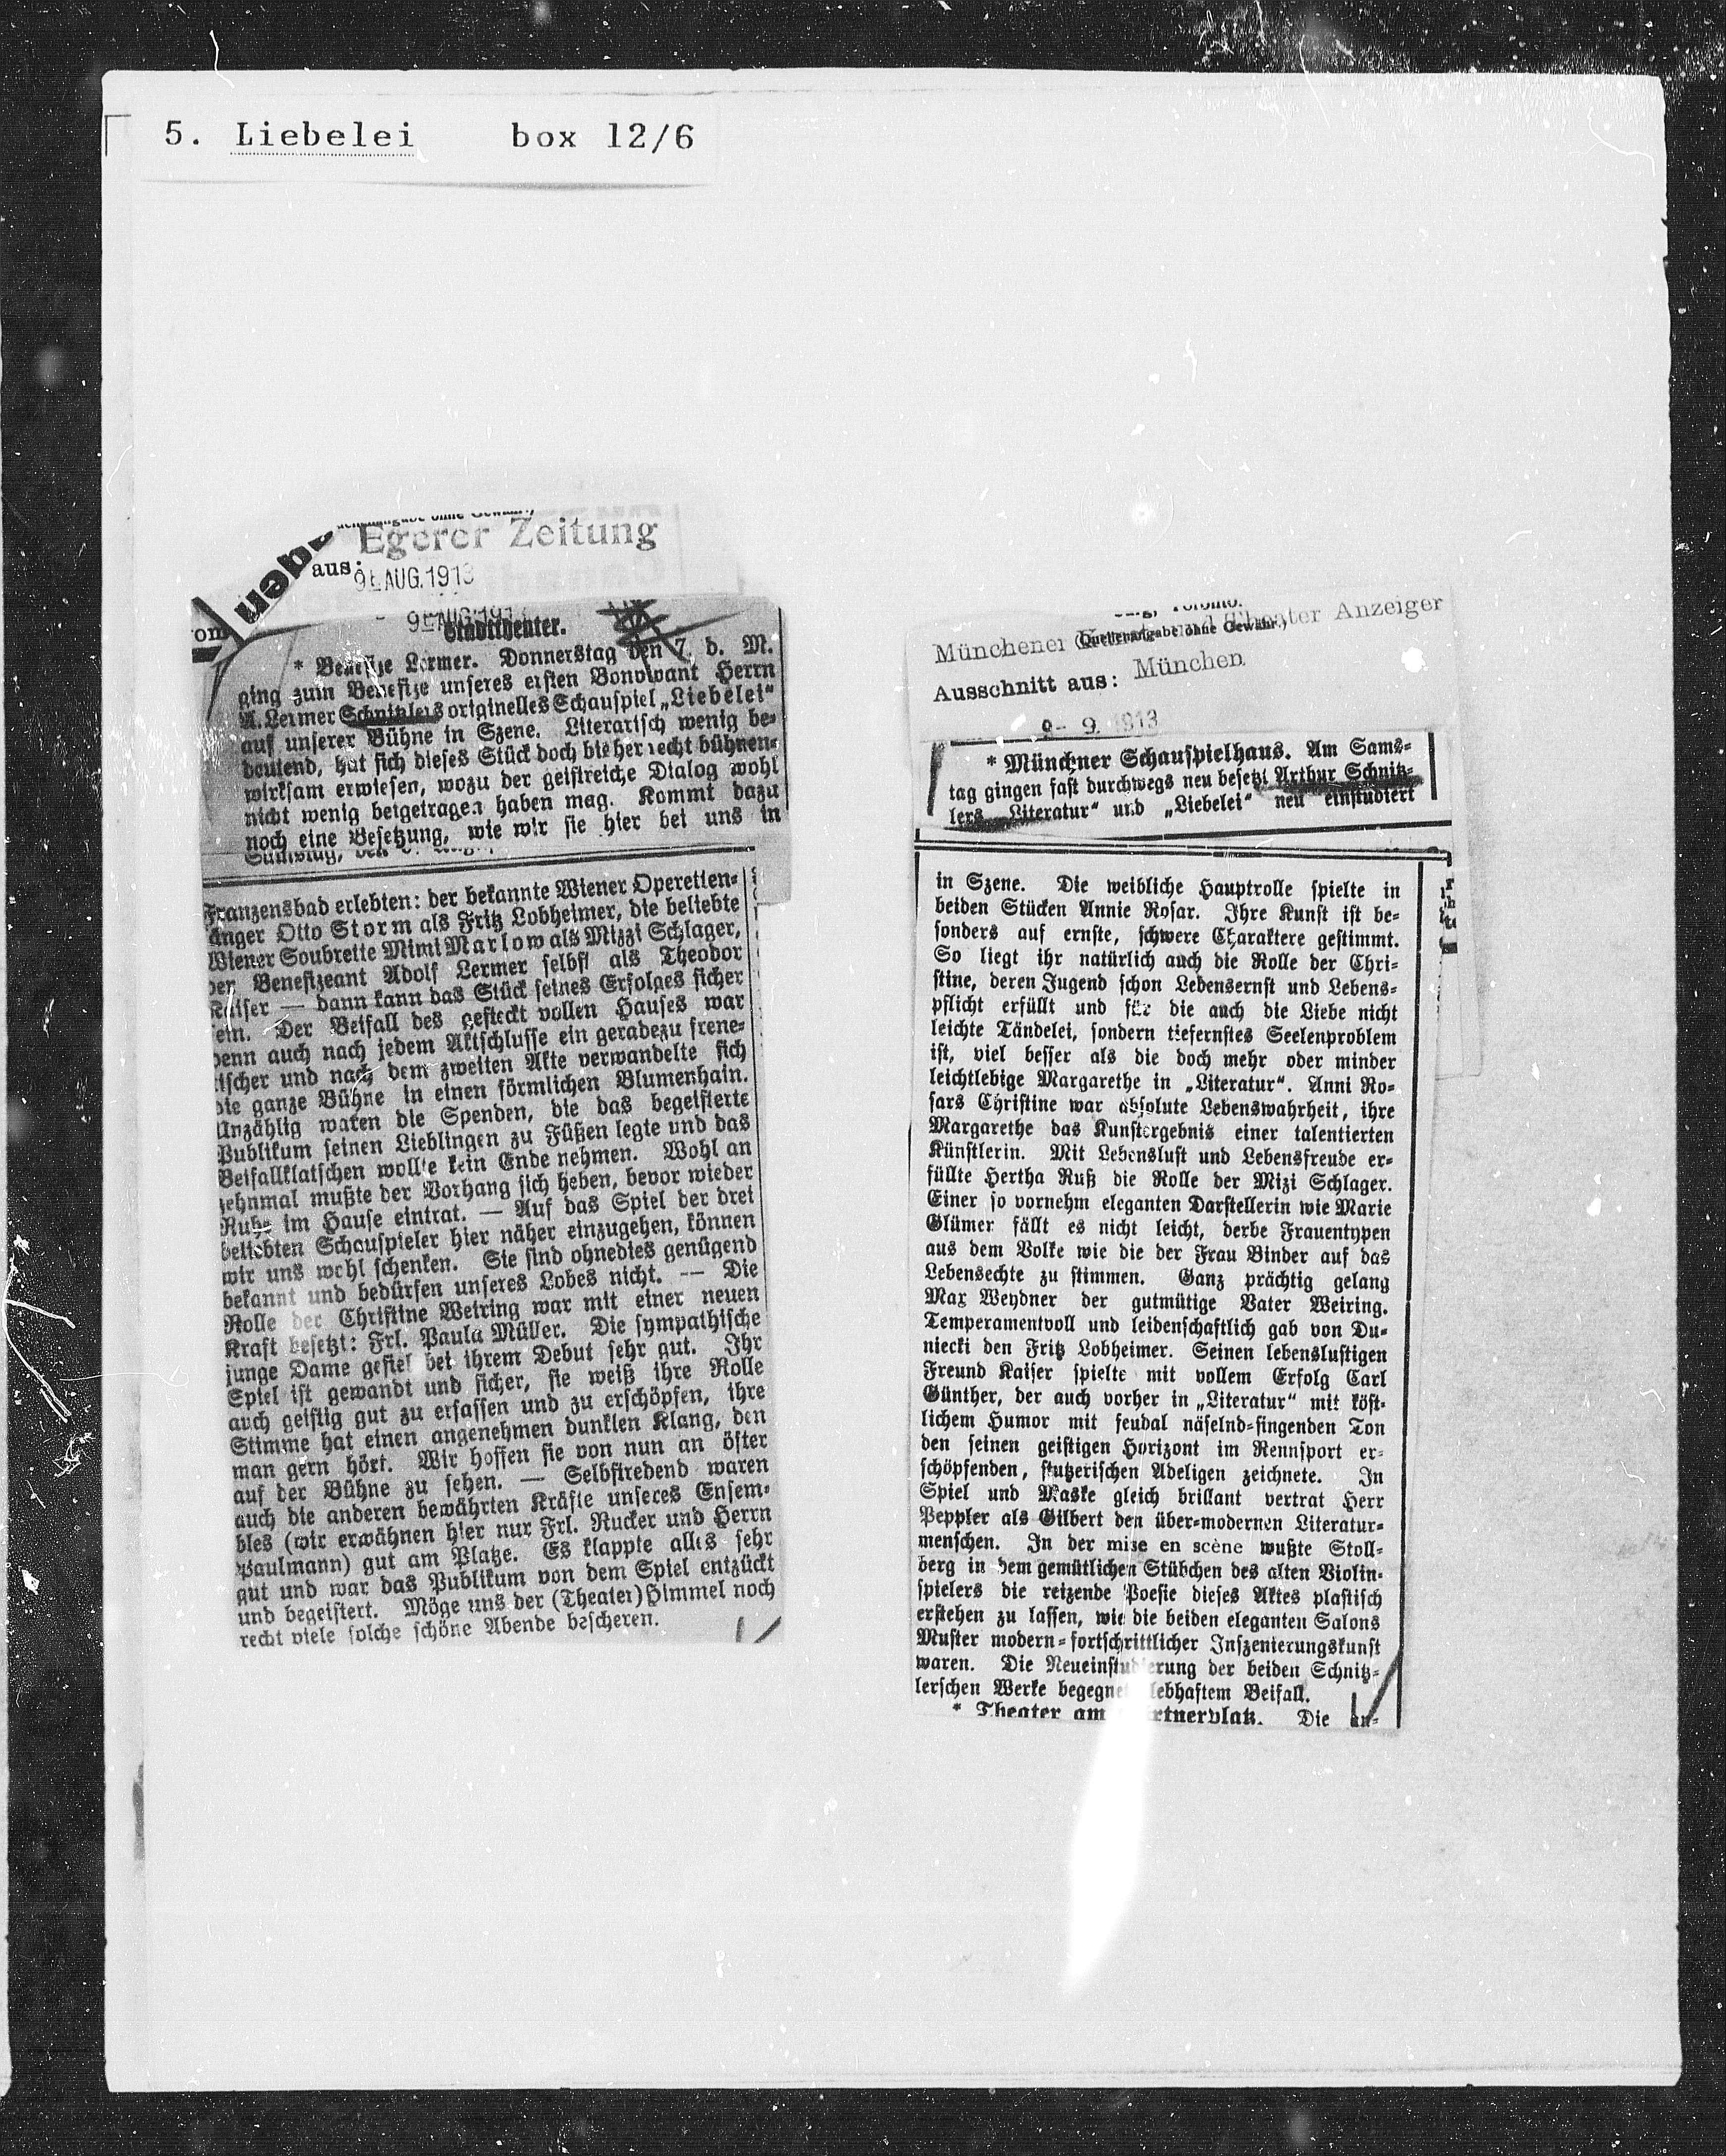 5. Liebelei box 12/6
Egerer Zeitung
aus:
9. AUG. 1913
Stadttheater.
* Benefize Lermer. Donnerstag den 7. d. M.
ging zum Benefize unseres ersten Bonvivant Herrn
A. Lermer Schnitzlers originelles Schauspiel „Liebelei“
auf unserer Bühne in Szene. Literarisch wenig be-
deutend, hat sich dieses Stück doch bisher recht bühnen-
wirksam erwiesen, wozu der geistreiche Dialog wohl
nicht wenig beigetragen haben mag. Kommt dazu
noch eine Besetzung, wie wir sie hier bei uns in
Franzensbad erlebten: der bekannte Wiener Operetten-
änger Otto Storm als Fritz Lobheimer, die beliebte
Wiener Soubrette Mimi Marlow als Mizzi Schlager,
der Benefizeant Adolf Lermer selbst als Theodor
Kaiser — dann kann das Stück seines Erfolges sicher
ein. Der Beifall des gesteckt vollen Hauses war
denn auch nach jedem Aktschlusse ein geradezu frene-
tischer und nach dem zweiten Akte verwandelte sich
die ganze Bühne in einen förmlichen Blumenhain.
Unzählig waren die Spenden, die das begeisterte
Publikum seinen Lieblingen zu Füßen legte und das
Beifallklatschen wollte kein Ende nehmen. Wohl an
zehnmal mußte der Vorhang sich heben, bevor wieder
Ruhe im Hause eintrat. — Auf das Spiel der drei
beliebten Schauspieler hier näher einzugehen, können
wir uns wohl schenken. Sie sind ohnedies genügend
bekannt und bedürfen unseres Lobes nicht. — Die
Rolle der Christine Weiring war mit einer neuen
Kraft besetzt: Frl. Paula Müller. Die sympathische
junge Dame gefiel bei ihrem Debut sehr gut. Ihr
Spiel ist gewandt und sicher, sie weiß ihre Rolle
auch geistig gut zu erfassen und zu erschöpfen, ihre
Stimme hat einen angenehmen dunklen Klang, den
man gern hört. Wir hoffen sie von nun an öfter
auf der Bühne zu sehen. — Selbstredend waren
auch die anderen bewährten Kräfte unseres Ensem-
bles (wir erwähnen hier nur Frl. Rucker und Herrn
Paulmann) gut am Platze. Es klappte alles sehr
gut und war das Publikum von dem Spiel entzückt
und begeistert. Möge uns der (Theater) Himmel noch
recht viele solche schöne Abende bescheren.
(Quellenangabe ohne Gewähr.)
Münchener Theater Anzeiger
Ausschnitt aus: München
9. 1913
* Münchner Schauspielhaus. Am Sams-
tag gingen fast durchwegs neu besetzt Arthur Schnitz-
lers „Literatur“ und „Liebelei“ neu einstudiert
in Szene. Die weibliche Hauptrolle spielte in
beiden Stücken Annie Rosar. Ihre Kunst ist be-
sonders auf ernste, schwere Charaktere gestimmt.
So liegt ihr natürlich auch die Rolle der Chri-
stine, deren Jugend schon Lebensernst und Lebens-
pflicht erfüllt und für die auch die Liebe nicht
leichte Tändelei, sondern tiefernstes Seelenproblem
ist, viel besser als die doch mehr oder minder
leichtlebige Margarethe in „Literatur“. Anni Ro-
sars Christine war absolute Lebenswahrheit, ihre
Margarethe das Kunstergebnis einer talentierten
Künstlerin. Mit Lebenslust und Lebensfreude er-
füllte Hertha Ruß die Rolle der Mizi Schlager.
Einer so vornehm eleganten Darstellerin wie Marie
Glümer fällt es nicht leicht, derbe Frauentypen
aus dem Volke wie die der Frau Binder auf das
Lebensechte zu stimmen. Ganz prächtig gelang
Max Weydner der gutmütige Vater Weiring.
Temperamentvoll und leidenschaftlich gab von Du-
niecki den Fritz Lobheimer. Seinen lebenslustigen
Freund Kaiser spielte mit vollem Erfolg Carl
Günther, der auch vorher in „Literatur“ mit köst-
lichem Humor mit feudal näselnd-singenden Ton
den seinen geistigen Horizont im Rennsport er-
schöpfenden, stutzerischen Adeligen zeichnete. In
Spiel und Maske gleich brillant vertrat Herr
Peppler als Gilbert den über-modernen Literatur-
menschen. In der mise en scène wußte Stoll-
berg in dem gemütlichen Stübchen des alten Violin-
spielers die reizende Poesie dieses Aktes plastisch
erstehen zu lassen, wie die beiden eleganten Salons
Muster modern-fortschrittlicher Inszenierungskunst
waren. Die Neueinstudierung der beiden Schnitz-
lerschen Werke begegnet lebhaftem Beifall.
* Theater am Gärtnerplatz. Die an-